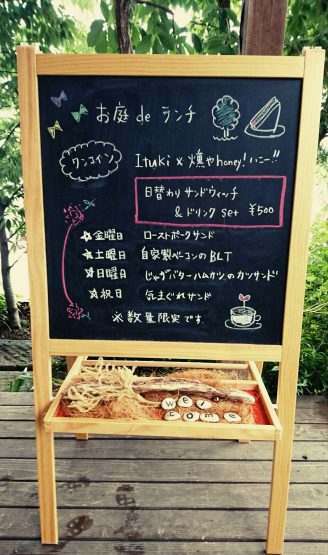 お庭 de ランチ
ワンコイン
Ituki x 燻やhoney!ハニー!!
日替わりサンドウィッチ
& ドリンク set ¥500
☆金曜日 ローストポークサンド
☆土曜日 自家製ベーコンのBLT
☆日曜日 じゃがバターハムカツのカツサンド
☆祝日 気まぐれサンド
※数量限定です.
WeL
come